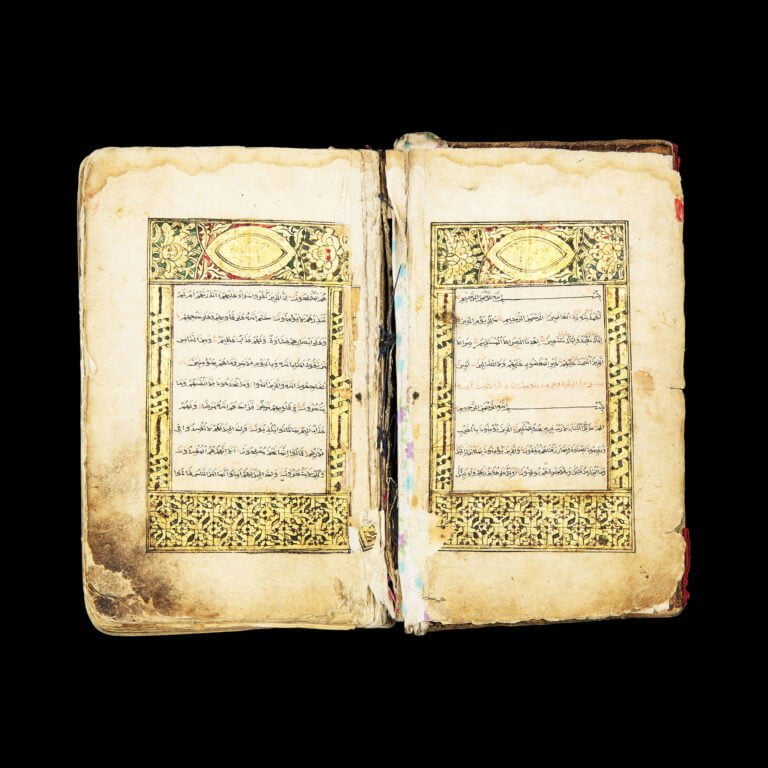 بسم الله الرحمن الرحيم
الحمد لله رب العالمين الرحمن الرحيم ملك يوم الدين
اياك نعبد واياك نستعين اهدنا الصراط المستقيم صراط
الذين انعمت عليهم غير المغضوب عليهم ولا الضالين
سورة البقرة
بسم الله الرحمن الرحيم
الم ذلك الكتاب لا ريب فيه هدى للمتقين الذين يؤمنون بالغيب
ويقيمون الصلوة ومما رزقناهم ينفقون والذين يؤمنون بما انزل اليك
وما انزل من قبلك وبالاخرة هم يوقنون اولئك
هم المفلحون ان الذين كفروا سواء عليهم ءانذرتهم ام لم
تنذرهم لا يؤمنون ختم الله على قلوبهم وعلى سمعهم
وعلى ابصارهم غشاوة ولهم عذاب عظيم ومن الناس
من يقول امنا بالله وباليوم الاخر وما هم بمؤمنين
يخادعون الله والذين امنوا وما يخدعون الا انفسهم وما
يشعرون في قلوبهم مرض فزادهم الله مرضا ولهم
عذاب اليم بما كانوا يكذبون واذا قيل لهم لا تفسدوا في
الارض قالوا انما نحن مصلحون الا انهم هم المفسدون
ولكن لا يشعرون واذا قيل لهم امنوا كما امن الناس قالوا